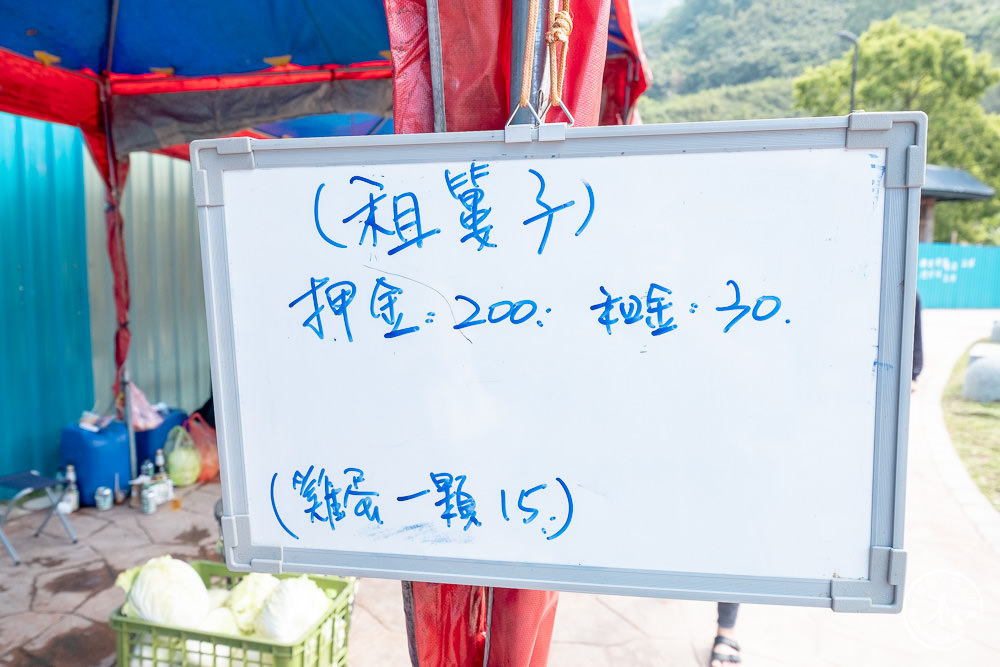 (租簍子)
押金:200: 租金:30.
(雞蛋一顆 15.)